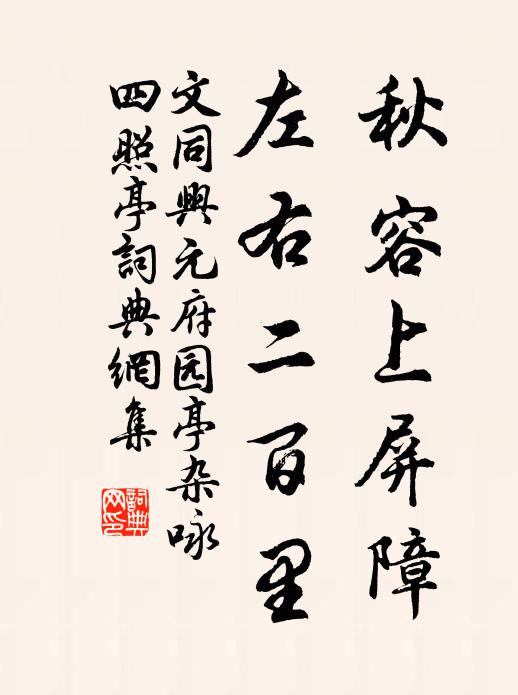 秋容上屏障
左右二百里
文同興元府园亭杂咏
四照亭詞典網集
詞典
网印